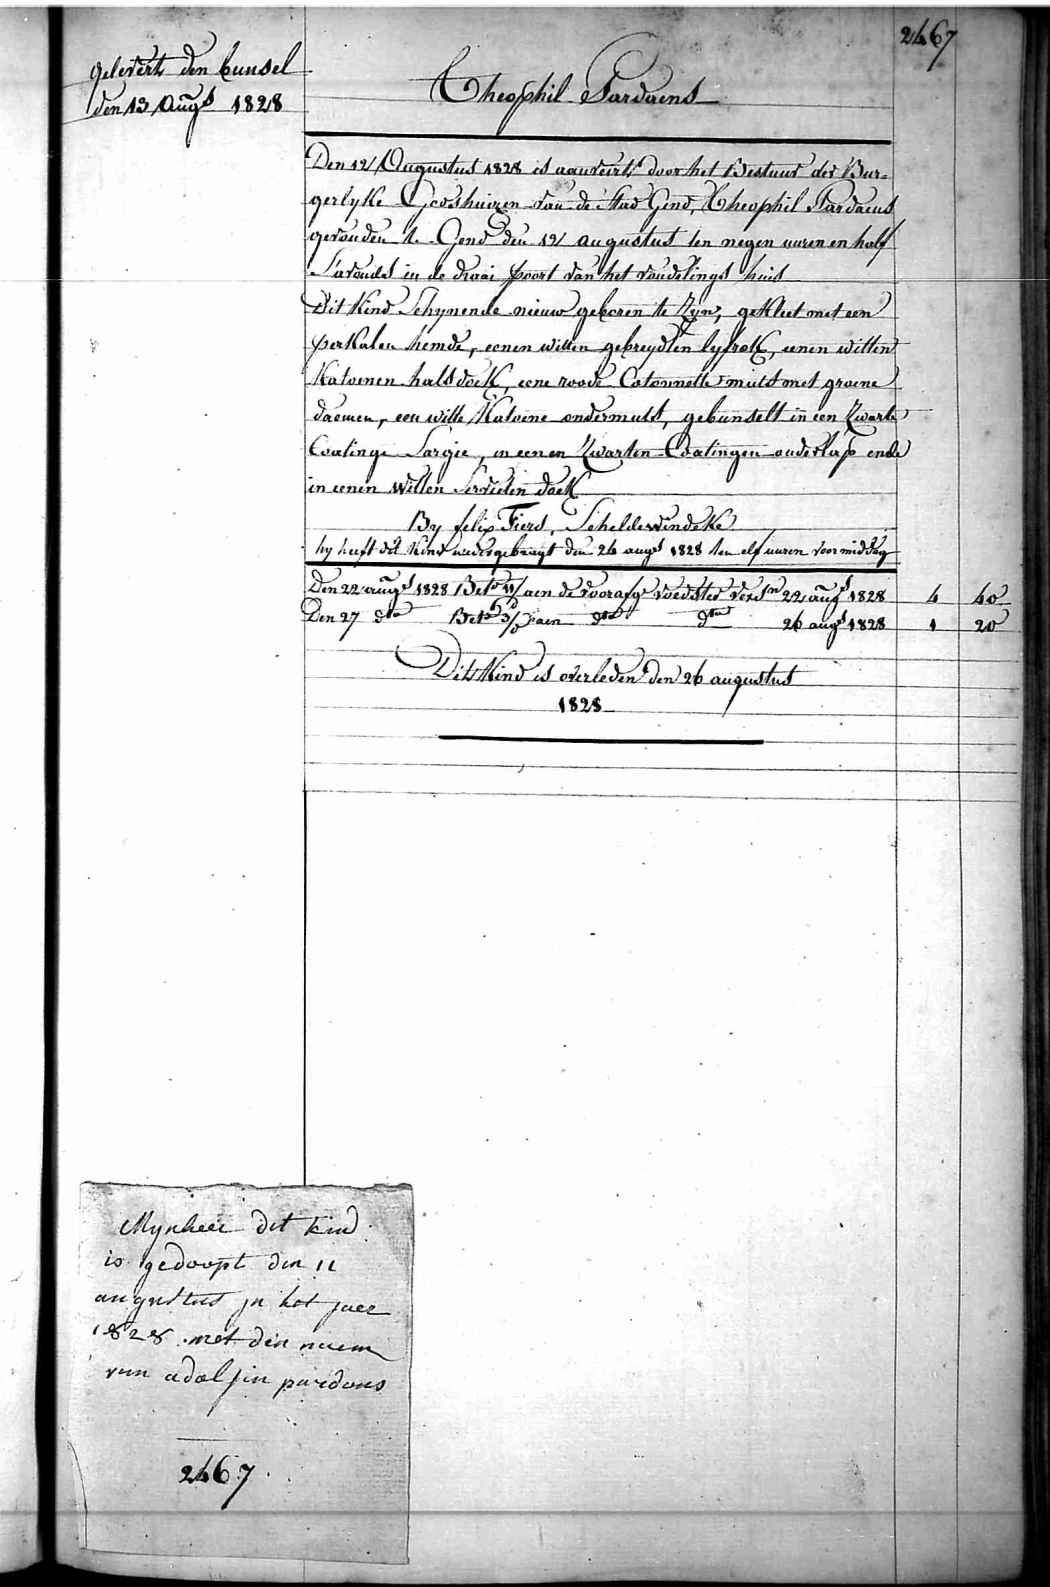 2467
gelevert den bunsel
den 13 Augs 1828
Theophil Pardaens
Den 12 Augustus 1828 is aanveirt door het Bestuur der Bur=
gerlyke Godshuizen van de Stad Gend, Theophil Pardaens
gevonden te Gend den 12 augustus ten negen uuren en half
s'avonds in de draai poort van het vondelings huis
Dit Kind Schynende nieuw geboren te Zyn, gekleet met een
perkalen hemde, eenen witten gebreydten lyfrok, eenen witten
Katoenen halsdoek, eene roode Cotonnette muts met groene
daemen, een witte Katoene ondermuts, gebunselt in een Zwarte
Coatinge Sargie, in eenen Zwarten Coatingen onderlap ende
in eenen witten Servieten doek
By felix Fiers, Scheldewindeke
hy heeft dit Kind wedergebragt den 26 augs 1828 ten elf uuren voormiddag
Den 22 augs 1828 Bet aen de voorafge voedster 22 augs 1828 4 40
Den 27 dto Bet aen dto dto 26 augs 1828 1 20
Dit Kind is overleden den 26 augustus
1828
Mynheer dit kind
is gedoopt den 11
augustus jn het jaer
1828 met den naem
van adolfin pardons
2467